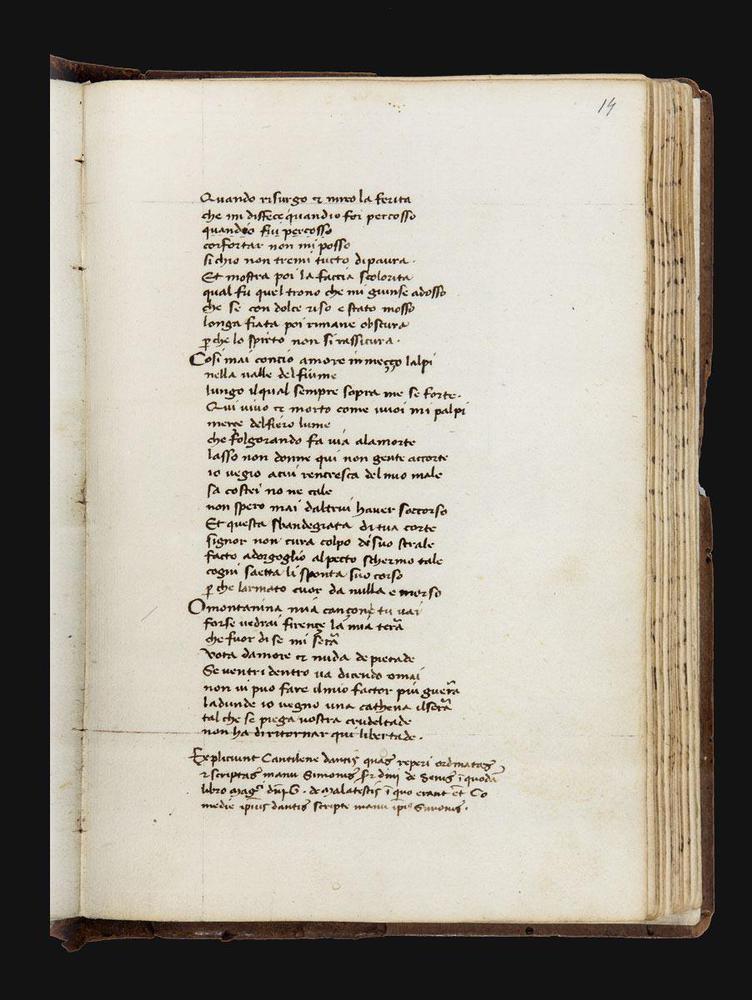 14
Quando risurgo et miro la ferita
che mi diffece quandio foi percosso
quandio fui percosso
confortar non mi posso
si chio non tremi tutto di paura.
Et mostra poi la faccia scolorita
qual fu quel trono che mi giunse adosso
che se con dolce riso e stato mosso
longa fiata poi rimane obscura
p che lo spirto non si rassicura.
Cosi mai concio amore in mezzo lalpi
nella valle del fiume
lungo il qual sempre sopra me se forte.
Qui vivo et morto come vuoi mi palpi
merçe del fiero lume
che folgorando fa via ala morte
lasso non donne qui non gente accorte
io vegio a cui rencresca del mio male
sa costei no ne cale
non spero mai daltrui haver soccorso
Et questa sbandegiata di tua corte
signor non cura colpo de suo strale
facto a dorgoglio al pecto schermo tale
cogni saetta li sponta suo corso
p che larmato cuor da nulla e morso
O montanina mia canzone tu vai
forse vedrai firenze la mia terra
che fuor di se mi serra
vota damore et nuda de pietade
Se ventri dentro va dicendo omai
non vi puo fare il mio factor piu guerra
la dunde io vegno una cathena il serra
tal che se piega vostra crudeltade
non ha di ritornar qui libertade.
Expliciunt Cantilene dantis quas reperi ordinatas
et scriptas manu Simonis de Senis i quodam
libro Mag. dni G. de Malatestis i quo erant et Co
medie ipius dantis scripte manu ipi Simonis.